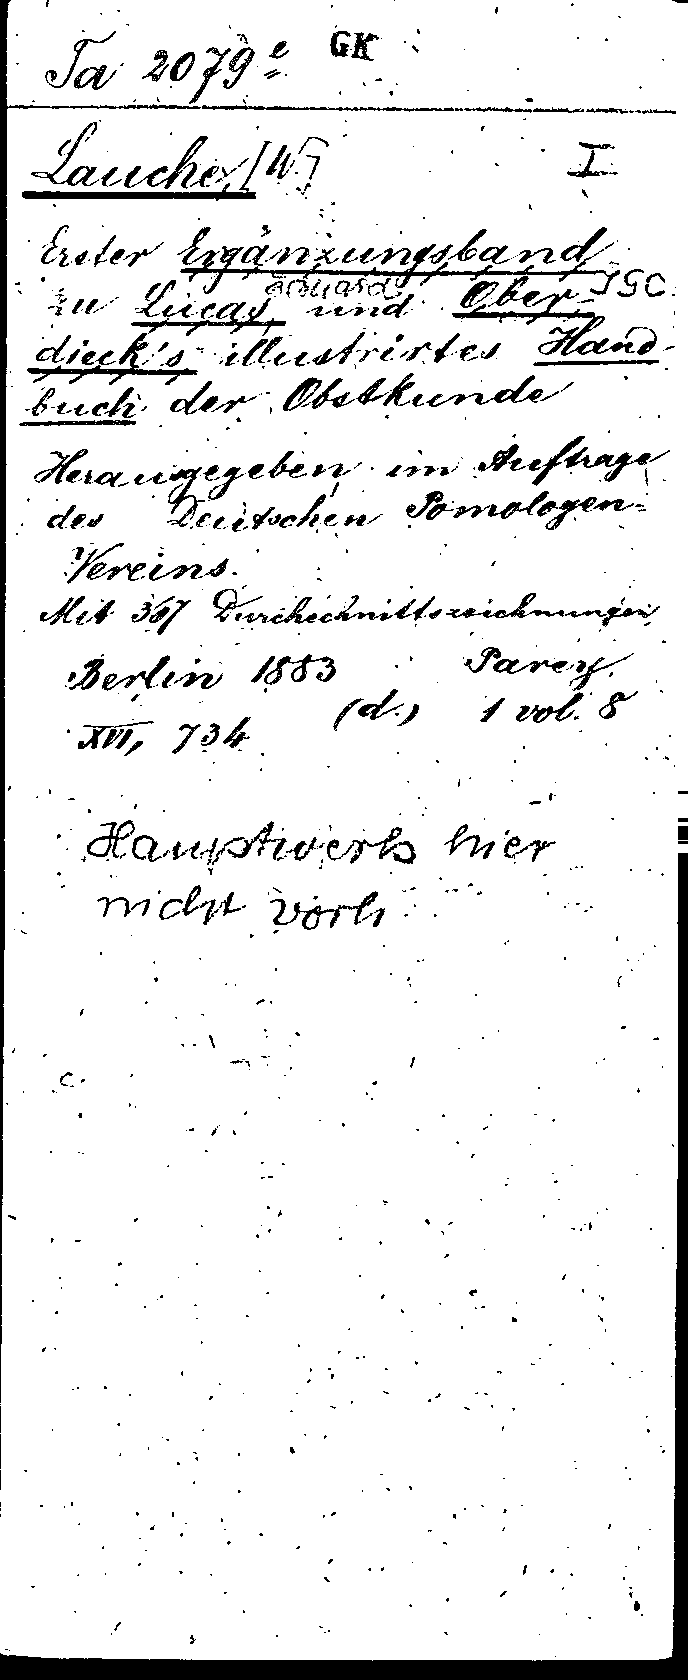 Ta 2079e GK
Lauche, [W.] I
Erster Ergänzungsband
zu Lucas, Eduard und Ober- JGC
dieck's illustrirtes Hand-
buch der Obstkunde
Herausgegeben im Auftrage
des Deutschen Pomologen-
Vereins.
Mit 367 Durchschnittszeichnungen
Berlin 1883 Parey.
XVI, 734 (d.) 1 vol. 8
Hauptwerk hier
nicht vorh